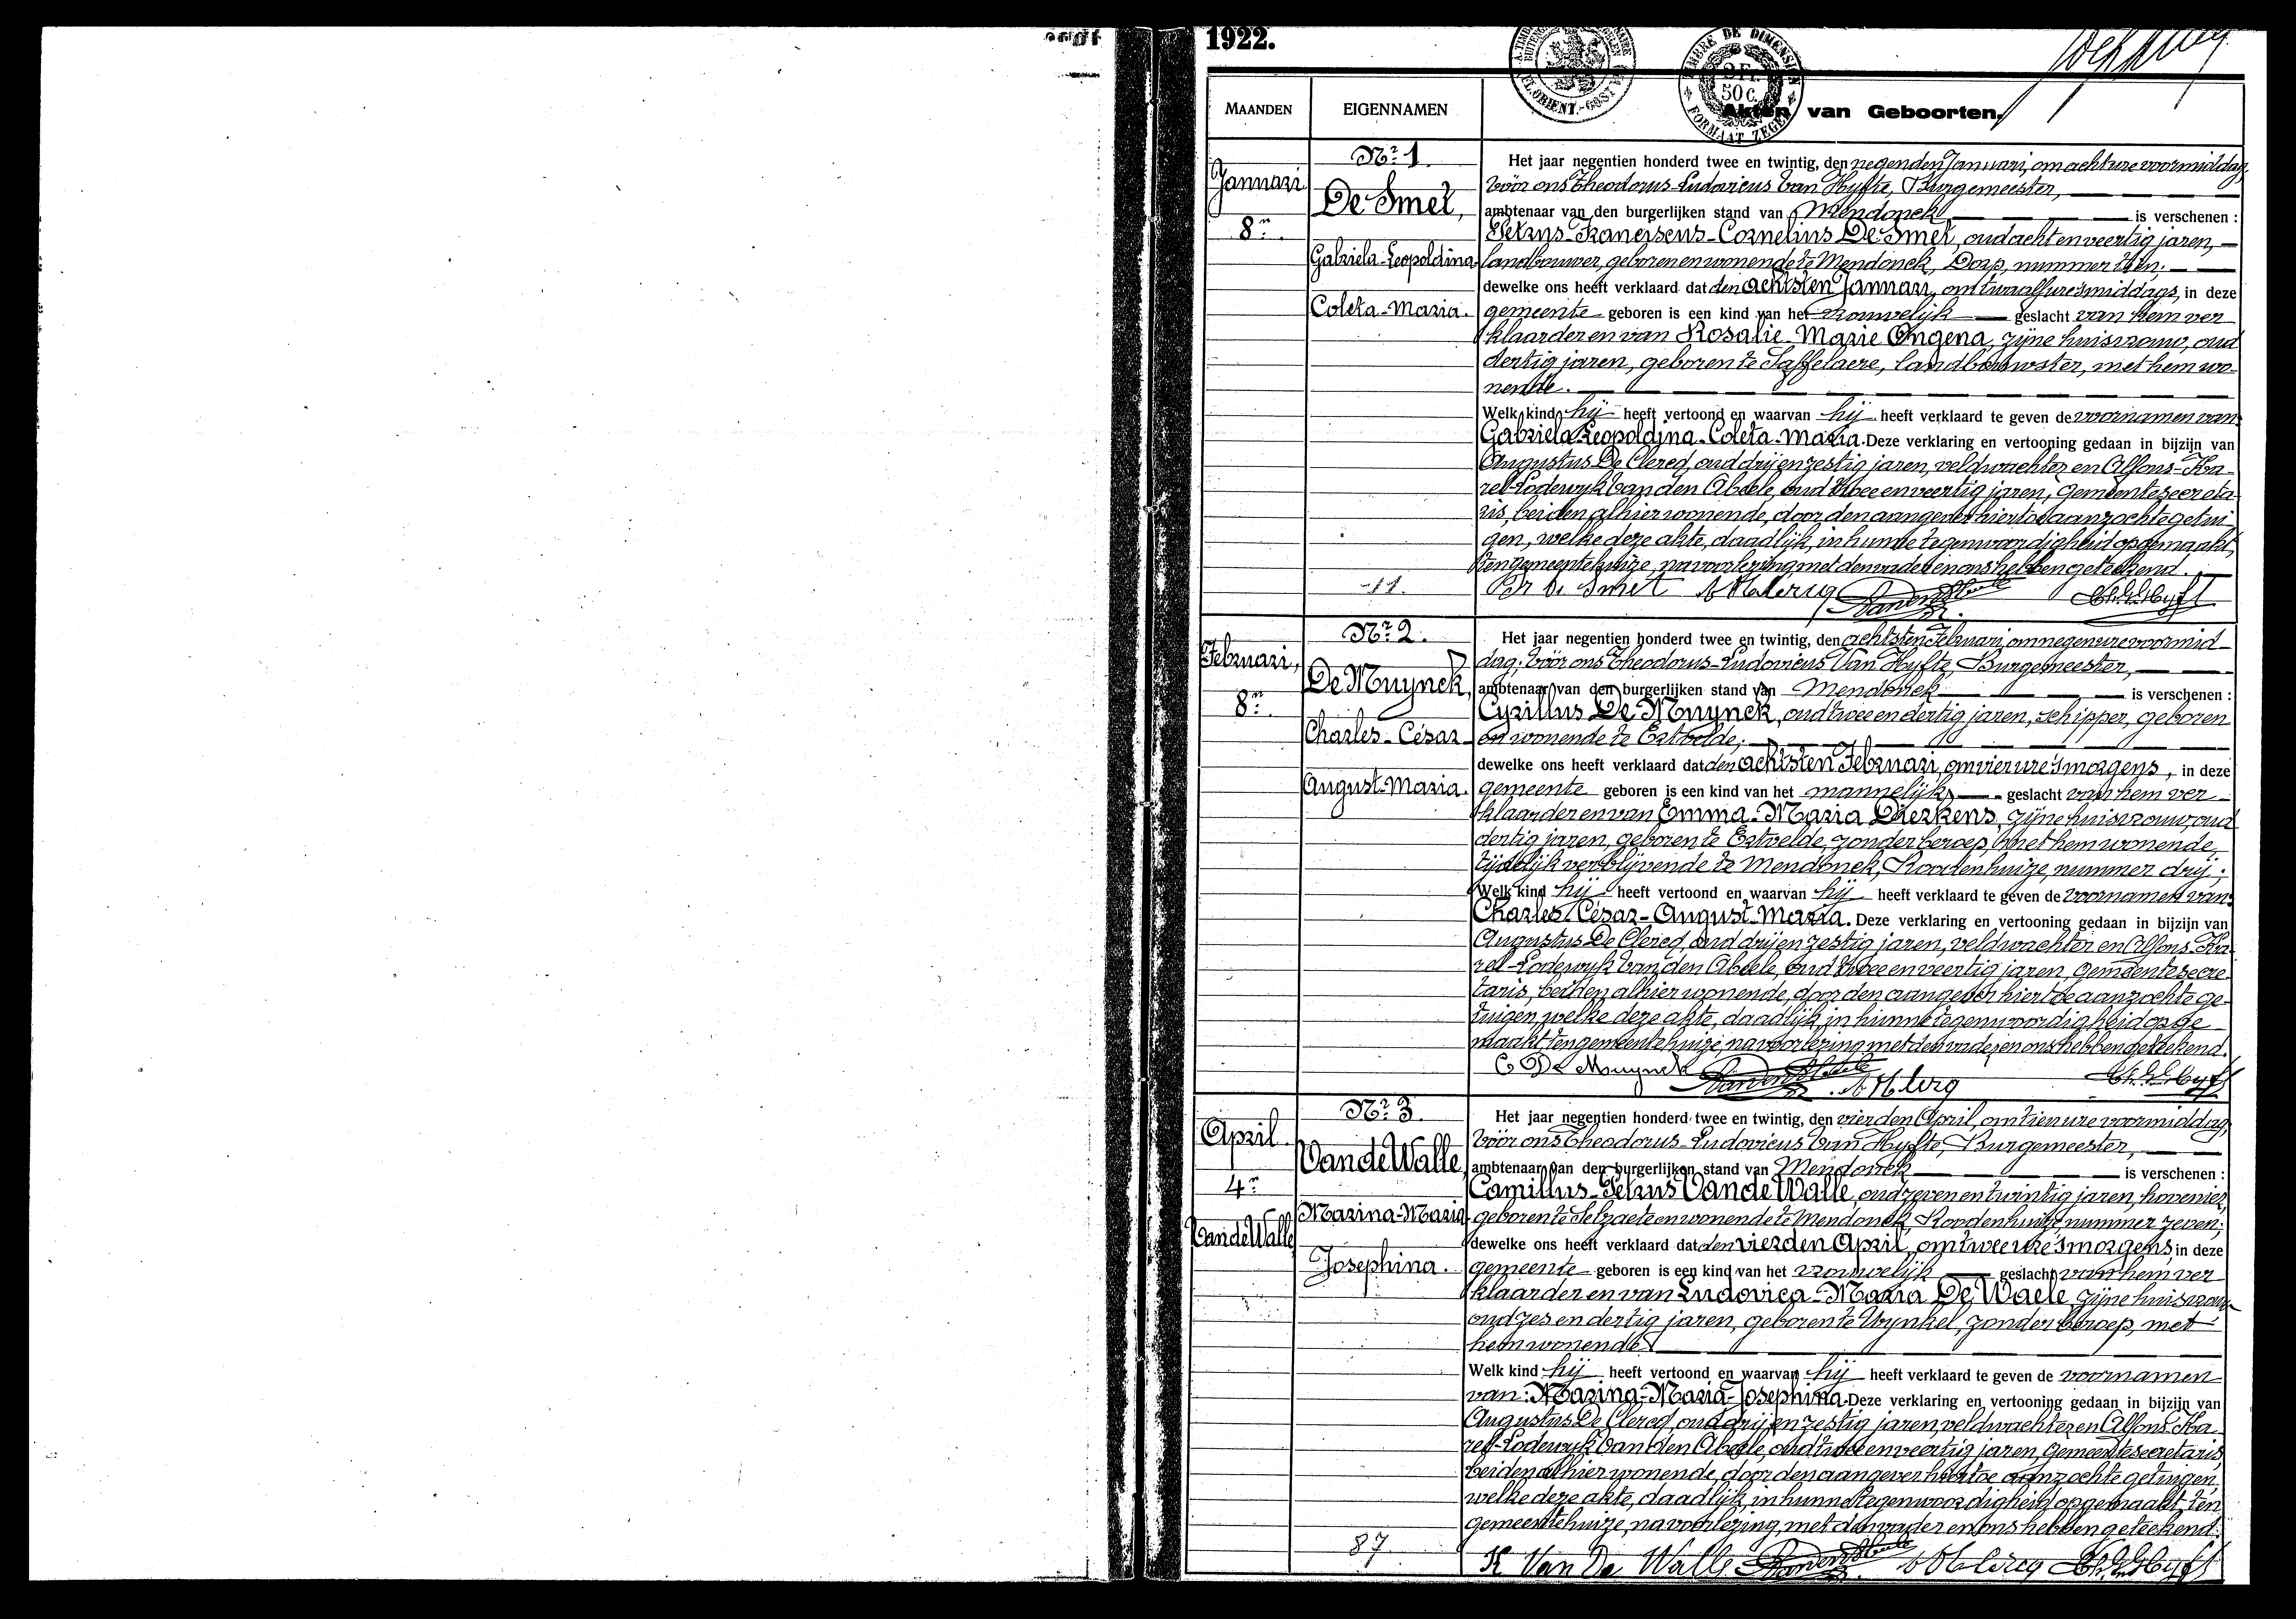 1922.
MAANDEN
EIGENNAMEN
Akten van Geboorten.
FORMAAT ZEGEL
2 Fr.
50 C.
Januari
8n
Nr 1.
De Smet,
Gabriela-Leopoldina
Coleta-Maria.
11.
Het jaar negentien honderd twee en twintig, den negenden Januari, om acht ure voormiddag,
vóór ons Theodorus-Ludovicus Van Hyfte, Burgemeester,
ambtenaar van den burgerlijken stand van Mendonck is verschenen :
Petrus-Franciscus-Cornelius De Smet, oud acht en veertig jaren,
landbouwer, geboren en wonende te Mendonck, Dorp, nummer
dewelke ons heeft verklaard dat den achtsten Januari, om twaalf ure 's middags, in deze
gemeente geboren is een kind van het vrouwelijk geslacht van hem ver-
klaarder en van Rosalie-Marie Ongena, zijne huisvrouw, oud
dertig jaren, geboren te Saffelaere, landbouwster, met hem wo-
nende.
Welk kind hij heeft vertoond en waarvan hij heeft verklaard te geven de voornamen van:
Gabriela-Leopoldina-Coleta-Maria. Deze verklaring en vertooning gedaan in bijzijn van
Augustus De Clercq, oud drij en zestig jaren, veldwachter en Alfons-Ka-
rel-Lodewijk Van den Abeele, oud twee en veertig jaren, gemeentesecreta-
ris, beiden alhier wonende, door den aangever hiertoe aanzochte getui-
gen, welke deze akte, daadlijk, in hunne tegenwoordigheid opgemaakt,
ten gemeentehuize, na voorlezing met den vader en ons hebben geteekend.
De Smet
Februari,
8n
Nr 2.
De Muynck,
Charles-César-
August-Maria.
Het jaar negentien honderd twee en twintig, den achtsten Februari, om negen ure voormid-
dag, vóór ons Theodorus-Ludovicus Van Hyfte, Burgemeester,
ambtenaar van den burgerlijken stand van Mendonck is verschenen :
Cyrillus De Muynck, oud twee en dertig jaren, schipper, geboren
en wonende te Ertvelde;
dewelke ons heeft verklaard dat den achtsten Februari, om vier ure 's morgens, in deze
gemeente geboren is een kind van het mannelijk geslacht van hem ver-
klaarder en van Emma-Maria Dierkens, zijne huisvrouw, oud
dertig jaren, geboren te Ertvelde, zonder beroep, met hem wonende,
tijdelijk verblijvende te Mendonck, Roodenhuize, nummer drij;
Welk kind hij heeft vertoond en waarvan hij heeft verklaard te geven de voornamen van:
Charles-César-August-Maria. Deze verklaring en vertooning gedaan in bijzijn van
Augustus De Clercq, oud drij en zestig jaren, veldwachter en Alfons-Ka-
rel-Lodewijk Van den Abeele, oud twee en veertig jaren, gemeentesecre-
taris, beiden alhier wonende, door den aangever hiertoe aanzochte ge-
tuigen, welke deze akte, daadlijk, in hunne tegenwoordigheid opge-
maakt, ten gemeentehuize, na voorlezing met den vader en ons hebben geteekend.
C De Muynck
April
4n
Van de Walle
Nr 3.
Van de Walle,
Marina-Maria-
Josephina.
87
Het jaar negentien honderd twee en twintig, den vierden April, om tien ure voormiddag,
vóór ons Theodorus-Ludovicus Van Hyfte, Burgemeester,
ambtenaar van den burgerlijken stand van Mendonck is verschenen :
Camillus-Petrus Van de Walle, oud zeven en twintig jaren, hovenier,
geboren te Selzaete en wonende te Mendonck, Roodenhuize, nummer zeven;
dewelke ons heeft verklaard dat den vierden April, om twee ure 's morgens, in deze
gemeente geboren is een kind van het vrouwelijk geslacht van hem ver-
klaarder en van Ludovica-Maria De Waele, zijne huisvrouw,
oud zes en dertig jaren, geboren te Wynkel, zonder beroep, met
hem wonende.
Welk kind hij heeft vertoond en waarvan hij heeft verklaard te geven de voornamen
van: Marina-Maria-Josephina. Deze verklaring en vertooning gedaan in bijzijn van
Augustus De Clercq, oud drij en zestig jaren, veldwachter en Alfons-Ka-
rel-Lodewijk Van den Abeele, oud twee en veertig jaren, gemeentesecretaris,
beiden alhier wonende, door den aangever hiertoe aanzochte getuigen,
welke deze akte, daadlijk, in hunne tegenwoordigheid opgemaakt, ten
gemeentehuize, na voorlezing, met den vader en ons hebben geteekend.
K Van De Walle